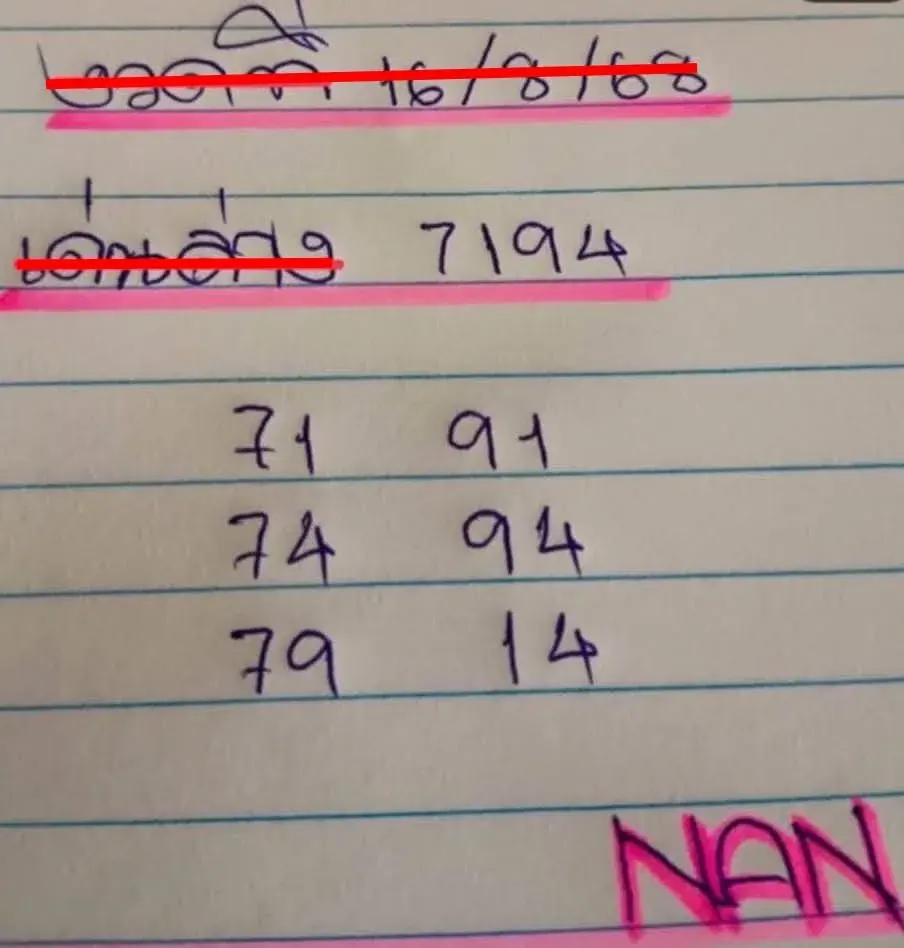 งวดที่ 16/8/68
เด่นล่าง 7194
71 91
74 94
79 14
NAN